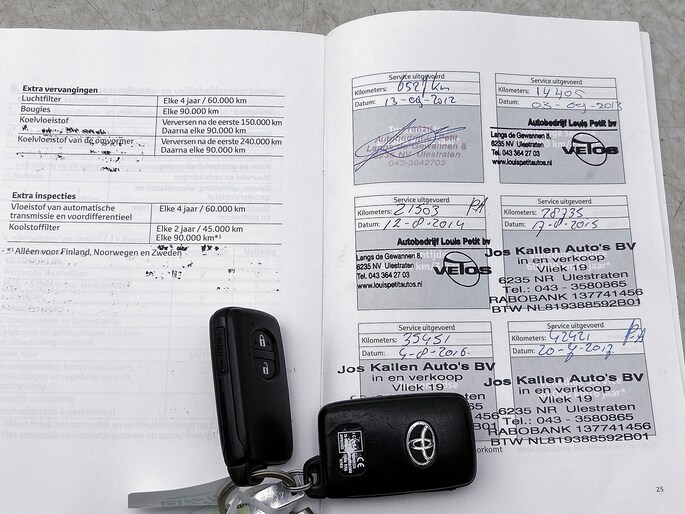 Extra vervangingen
Luchtfilter Elke 4 jaar / 60.000 km
Bougies Elke 90.000 km
Koelvloeistof Verversen na de eerste 150.000 km
Daarna elke 90.000 km
Koelvloeistof van de omvormer Verversen na de eerste 240.000 km
Daarna elke 90.000 km
Extra inspecties
Vloeistof van automatische transmissie en voordifferentieel Elke 4 jaar / 60.000 km
Koolstoffilter Elke 2 jaar / 45.000 km
Elke 90.000 km*¹
*¹ Alléén voor Finland, Noorwegen en Zweden
Service uitgevoerd
Kilometers: 6527 km
Datum: 13-09-2012
Autobedrijf Petit
Langs de Gewannen 8,
6235 NV Ulestraten
043-3642703
Service uitgevoerd
Kilometers: 14405
Datum: 03-09-2013
Autobedrijf Louis Petit bv
Langs de Gewannen 8,
6235 NV Ulestraten
Tel. 043 364 27 03
www.louispetitautos.nl
VELOS
Service uitgevoerd
Kilometers: 21503 PA
Datum: 12-8-2014
Autobedrijf Louis Petit bv
Langs de Gewannen 8,
6235 NV Ulestraten
Tel. 043 364 27 03
www.louispetitautos.nl
VELOS
Service uitgevoerd
Kilometers: 28735
Datum: 17-8-2015
Jos Kallen Auto's BV
in en verkoop
Vliek 19
6235 NR Ulestraten
Tel.: 043 - 3580865
RABOBANK 137741456
BTW NL819388592B01
Service uitgevoerd
Kilometers: 35451
Datum: 4-8-2016
Jos Kallen Auto's BV
in en verkoop
Vliek 19
Service uitgevoerd
Kilometers: 42421 PA
Datum: 20-7-2017
Jos Kallen Auto's BV
in en verkoop
Vliek 19
6235 NR Ulestraten
Tel.: 043 - 3580865
RABOBANK 137741456
BTW NL819388592B01
25